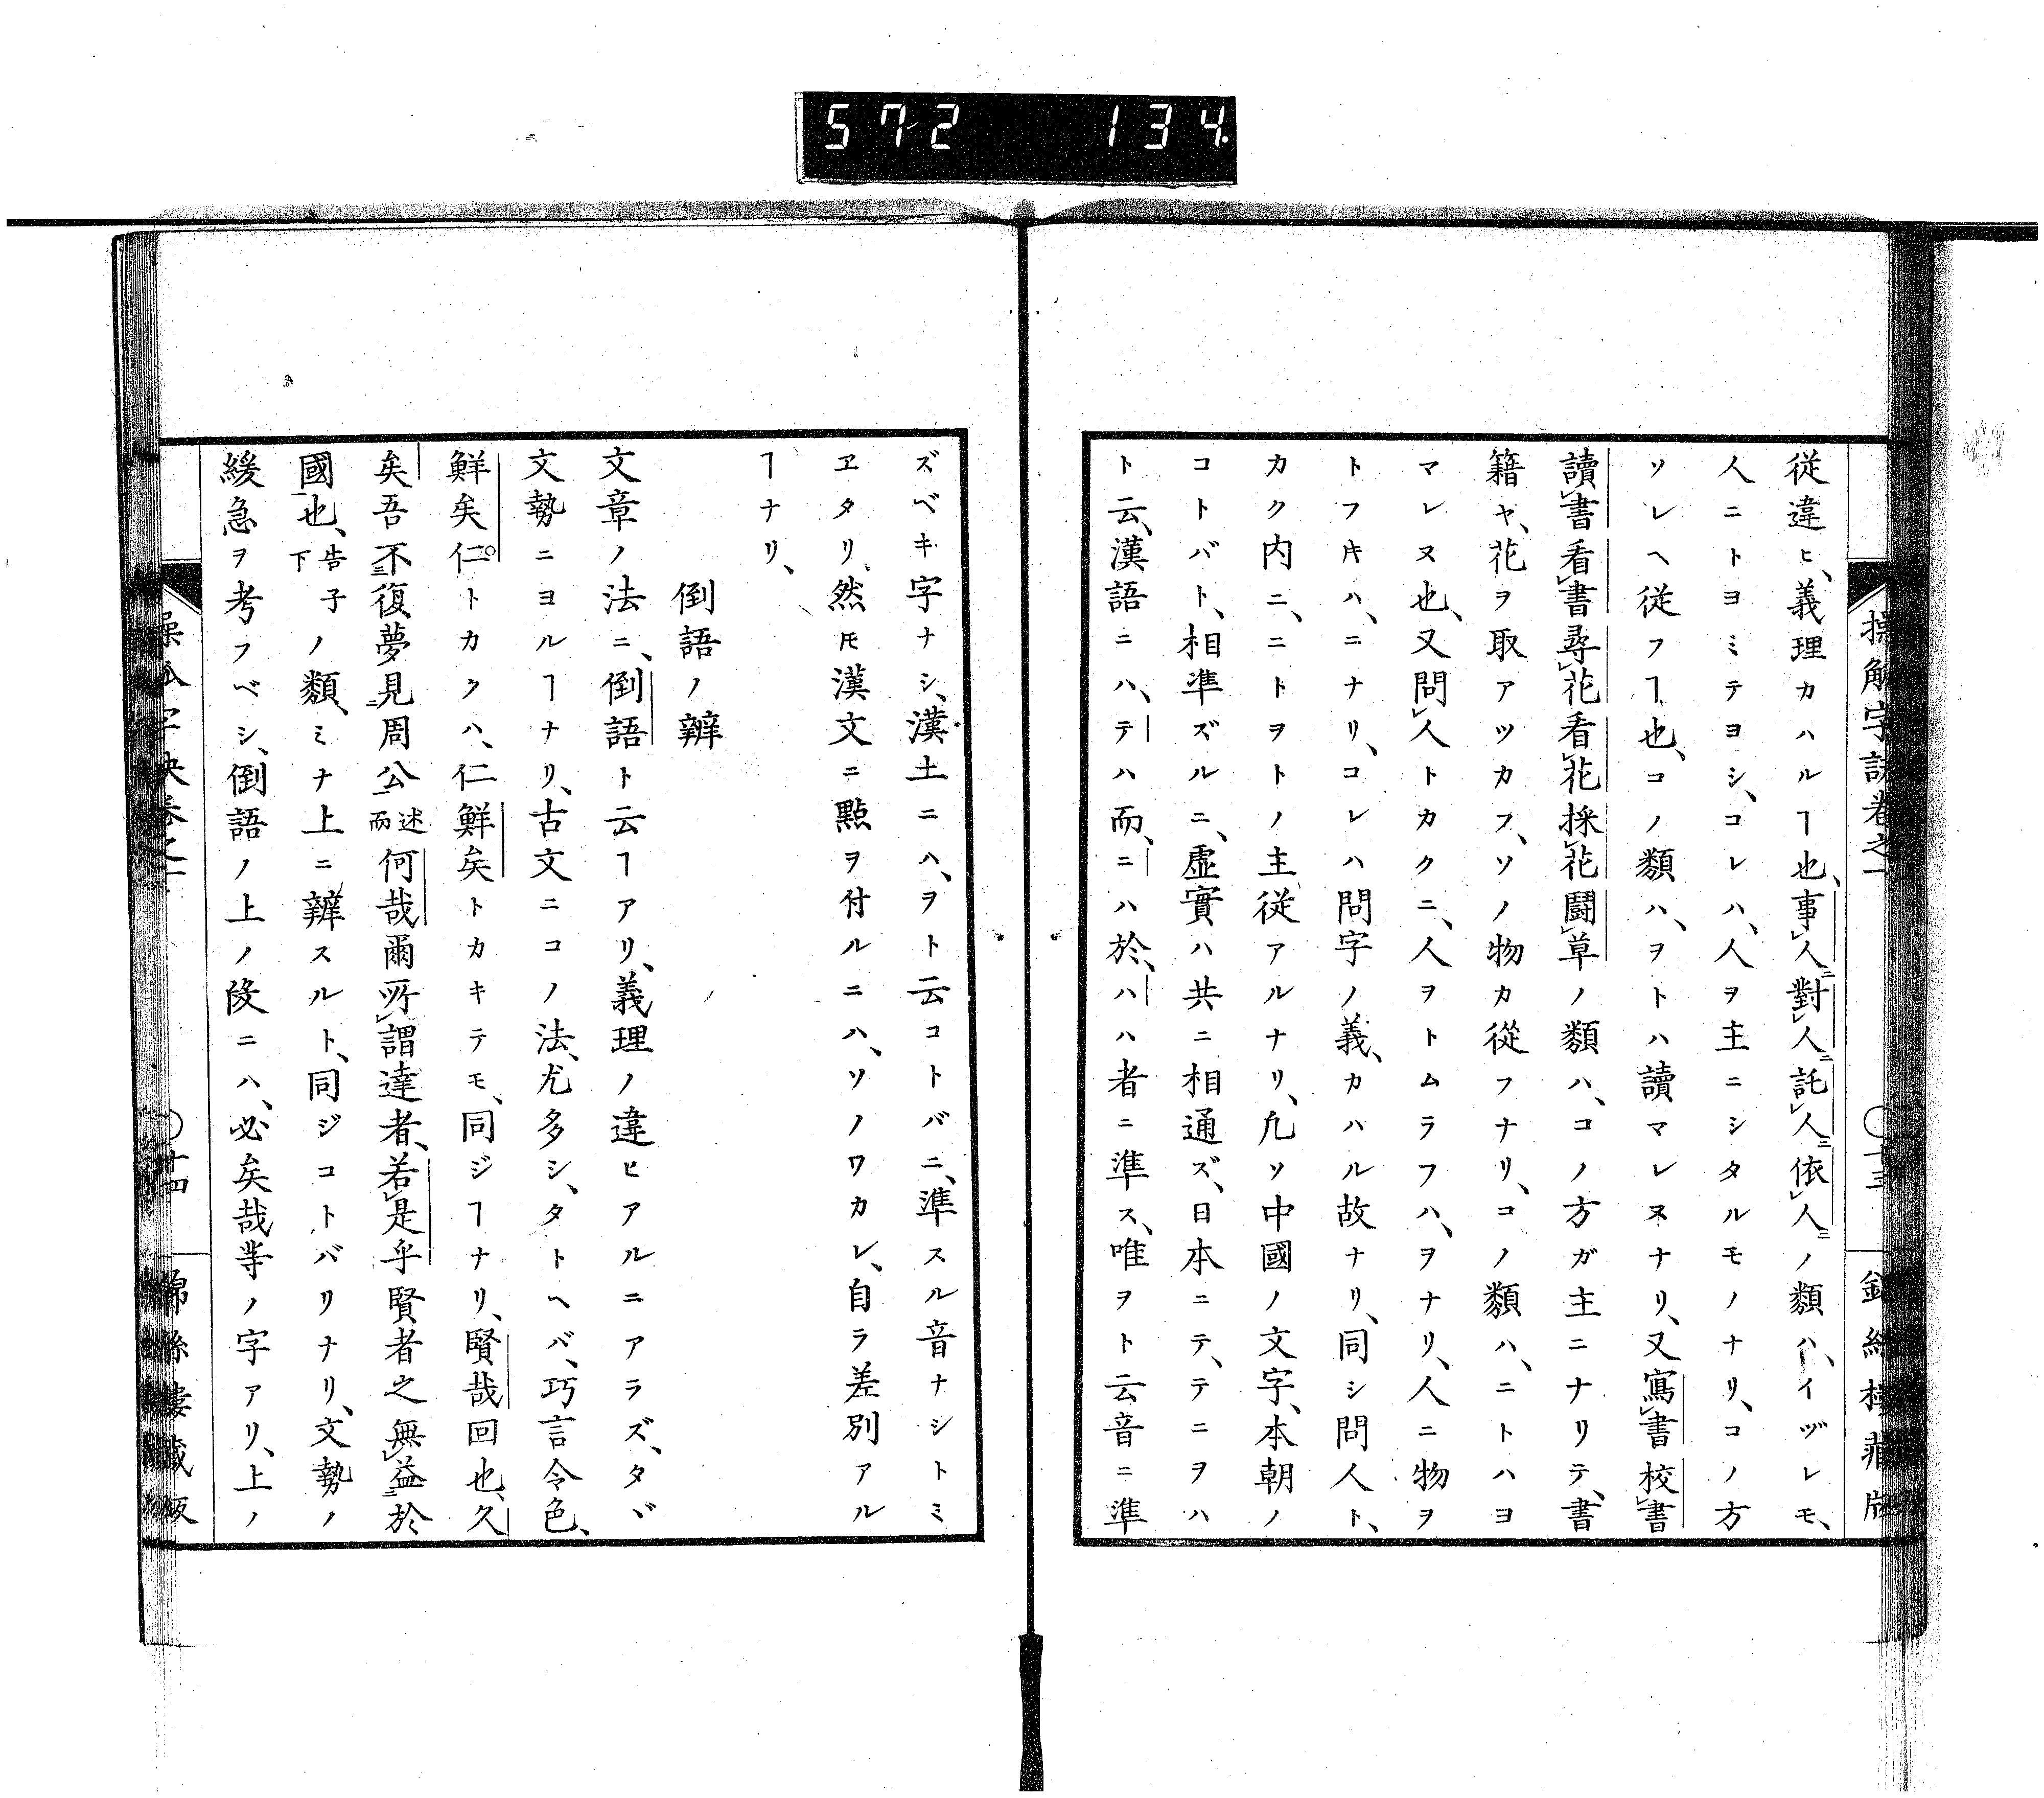 572 134
從違ヒ、義理カハルヿ也、事㆑人ニ對㆑人ニ託㆑人ニ依㆑人ニノ類ハ、イヅレモ、
人ニトヨミテヨシ、コレハ、人ヲ主ニシタルモノナリ、コノ方
ソレヘ從フヿ也、コノ類ハ、ヲトハ讀マレヌナリ、又寫㆑書校㆑書
讀㆑書看㆑書尋㆑花看㆑花採㆑花鬪㆑草ノ類ハ、コノ方ガ主ニナリテ、書
籍ヤ、花ヲ取アツカフ、ソノ物カ從フナリ、コノ類ハ、ニトハヨ
マレヌ也、又問㆑人トカクニ、人ヲトムラフハ、ヲナリ、人ニ物ヲ
トフ𪜈ハ、ニナリ、コレハ問字ノ義、カハル故ナリ、同シ問人ト、
カク内ニ、ニトヲトノ主從アルナリ、凢ソ中國ノ文字、本朝ノ
コトバト、相準ズルニ、虛實ハ共ニ相通ズ、日本ニテ、テニヲハ
ト云、漢語ニハ、テハ而、ニハ於、ハハ者ニ準ス、唯ヲト云音ニ準
ズベキ字ナシ、漢土ニハ、ヲト云コトバニ、準スル音ナシトミ
ヱタリ、然𪜈漢文ニ點ヲ付ルニハ、ソノワカレ、自ラ差別アル
ヿナリ、
倒語ノ辨
文章ノ法ニ、倒語ト云ヿアリ、義理ノ違ヒアルニアラズ、タヾ
文勢ニヨルヿナリ、古文ニコノ法、尤多シ、タトヘバ、巧言令色、
鮮矣仁トカクハ、仁鮮矣トカキテモ、同ジヿナリ、賢哉回也、久
矣吾不㆓復夢見㆓周公㆒述而何哉爾所㆑謂達者、若㆑是乎賢者之無㆑益㆓於
國㆒也、告子下ノ類、ミナ上ニ辨スルト、同ジコトバリナリ、文勢ノ
緩急ヲ考フベシ、倒語ノ上ノ段ニハ、必矣哉等ノ字アリ、上ノ